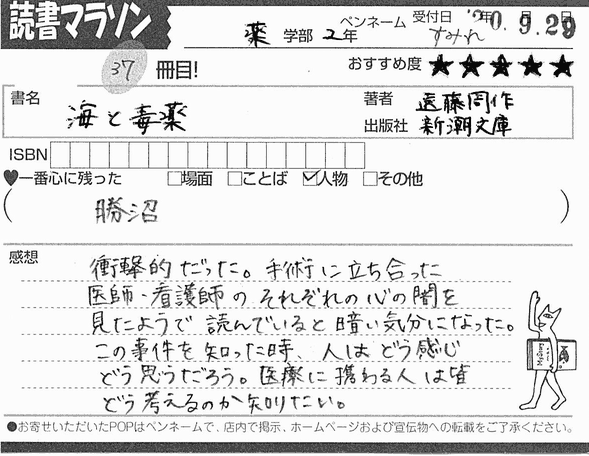 読書マラソン
薬 学部 2年 ペンネーム すみれ 受付日 年 月 日 '20.9.29
37 冊目! おすすめ度 ★★★★★
書名 海と毒薬 著者 遠藤周作
出版社 新潮文庫
ISBN
♥一番心に残った □場面 □ことば ☑人物 □その他
( 勝沼 )
感想
衝撃的だった。手術に立ち合った
医師・看護師のそれぞれの心の闇を
見たようで読んでいると暗い気分になった。
この事件を知った時、人はどう感じ
どう思うだろう。医療に携わる人は皆
どう考えるのか知りたい。
●お寄せいただいたPOPはペンネームで、店内で掲示、ホームページおよび宣伝物への転載をご了承ください。